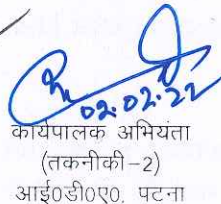 02.02.22
कार्यपालक अभियंता
(तकनीकी-2)
आई0डी0ए0, पटना